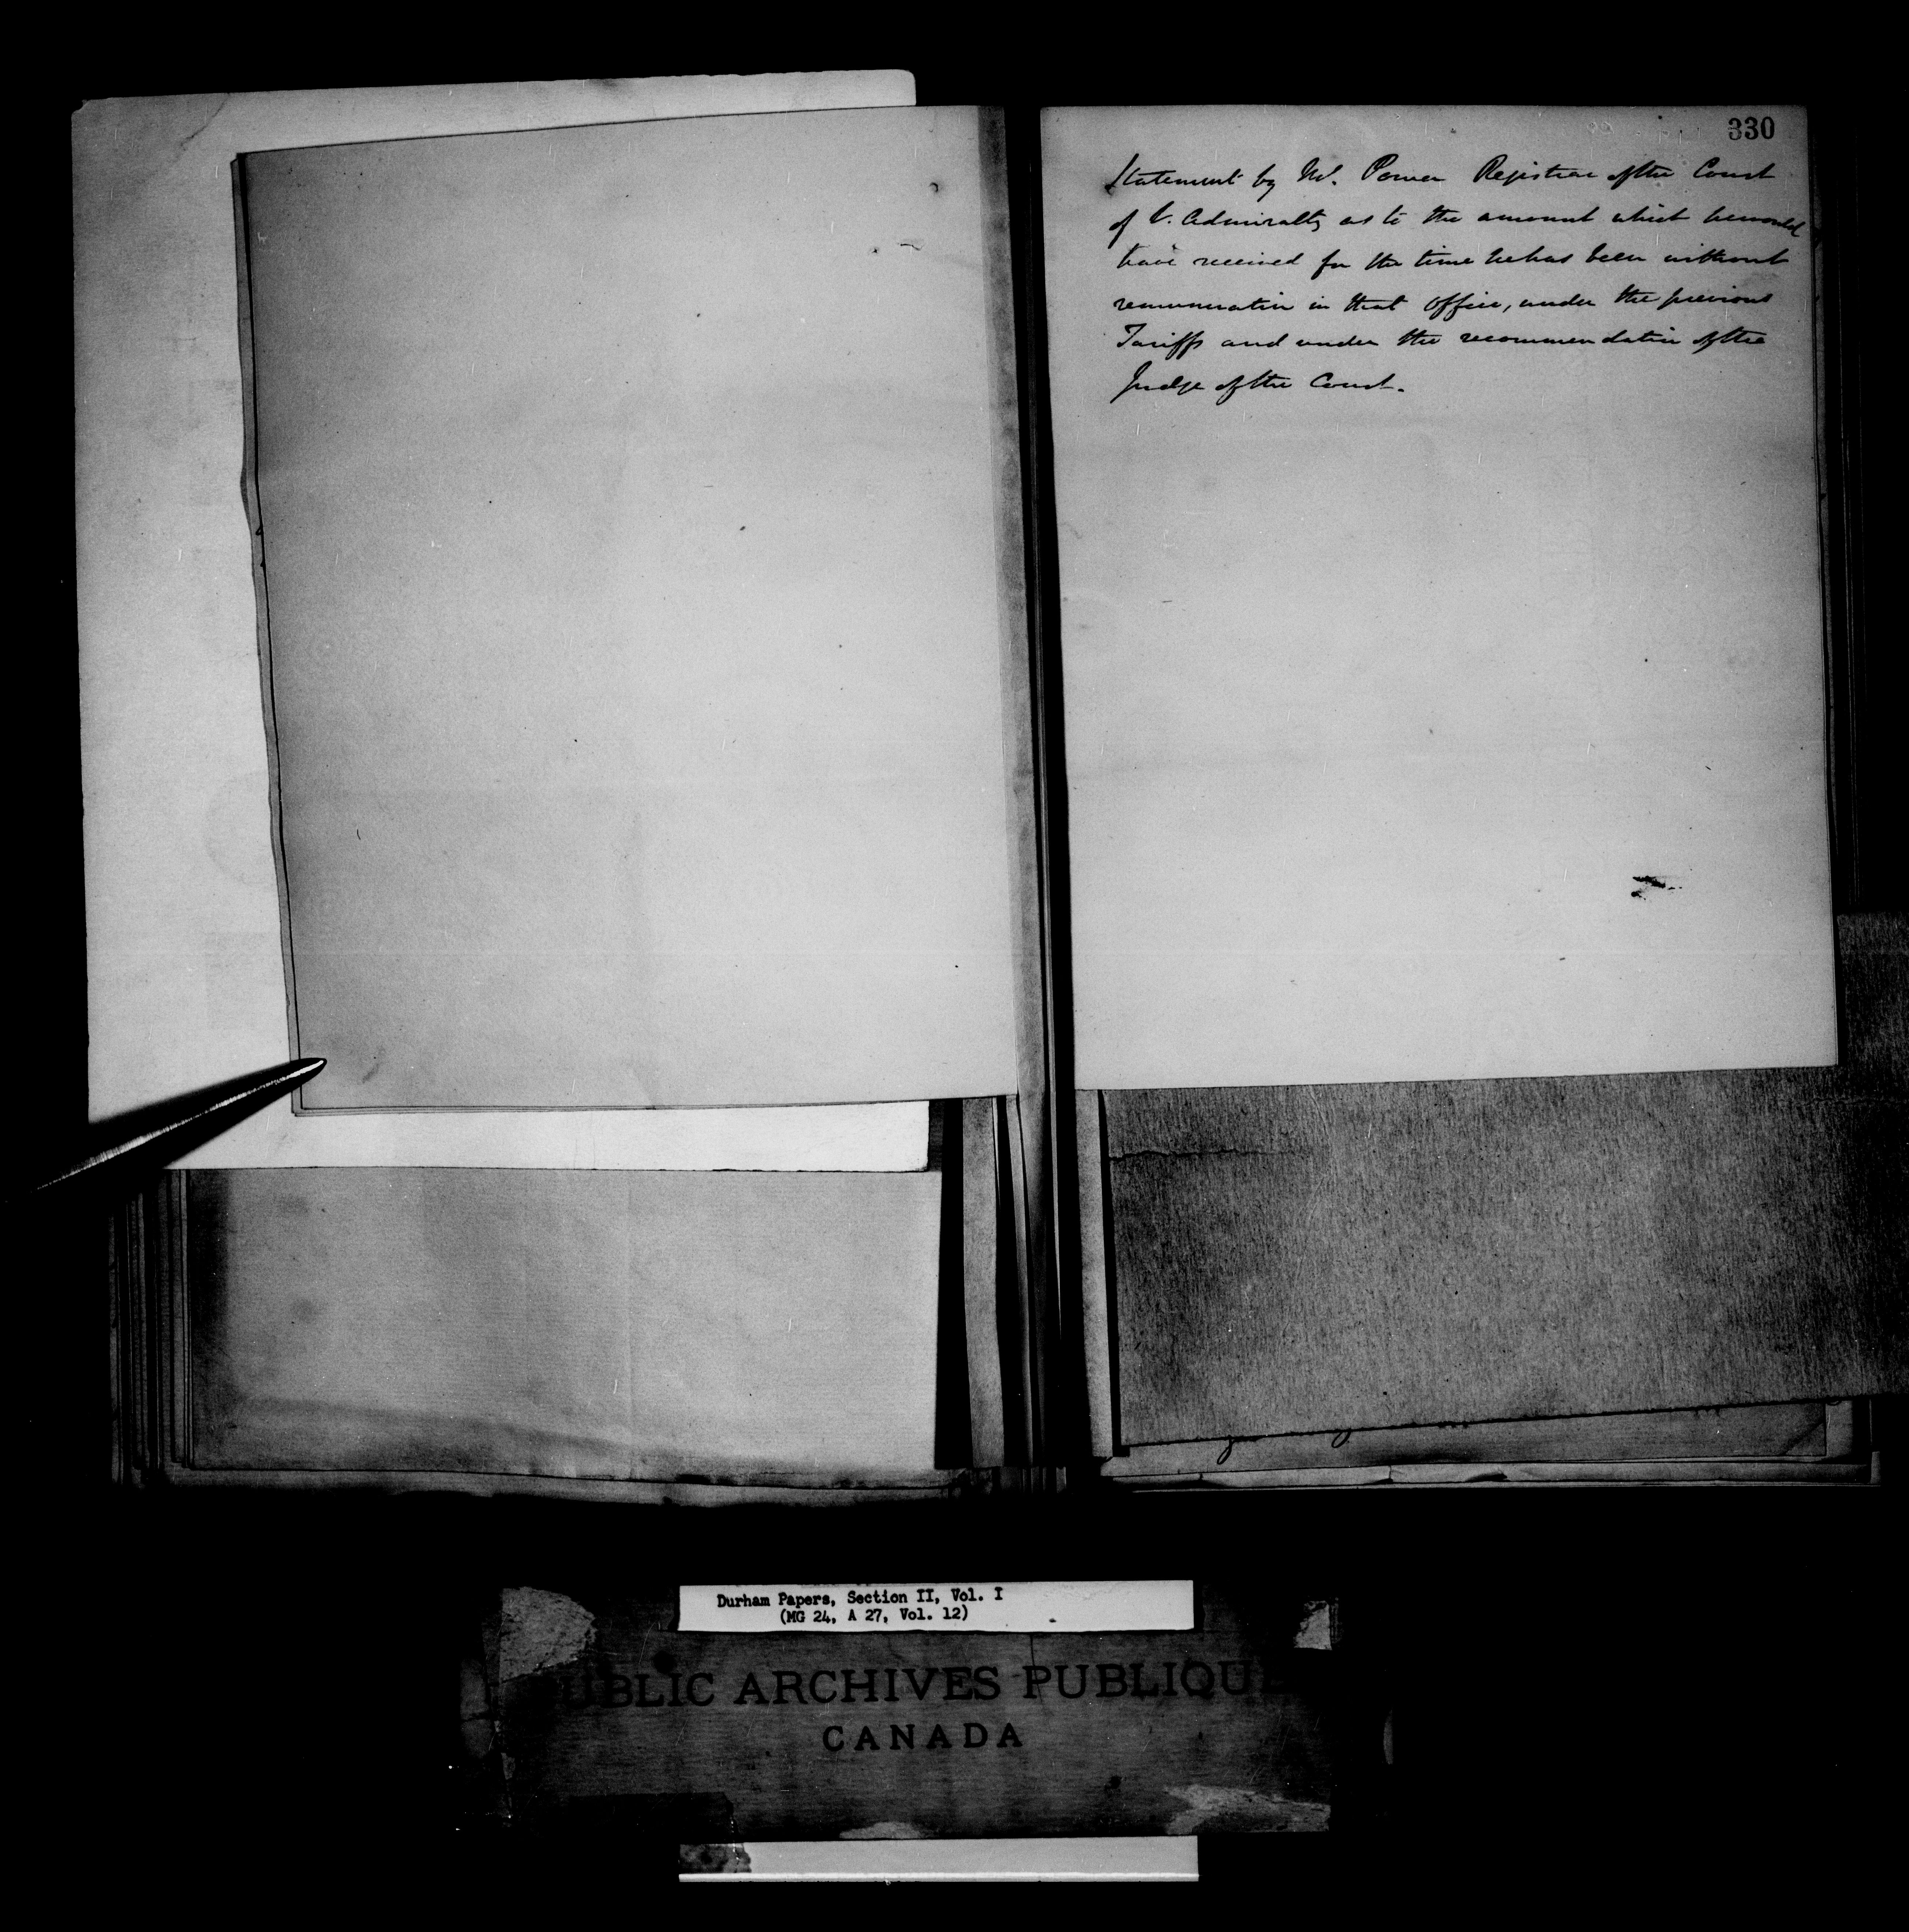 330
Statement by Mr. Power Registrar of the Court
of V. Admiralty as to the amount which he would
have received for the time he has been without
remuneration in that office, under the previous
Tariffs and under the recommendation of the
Judge of the Court.
Durham Papers, Section II, Vol. I
(MG 24, A 27, Vol. 12)
PUBLIC ARCHIVES PUBLIQUE
CANADA